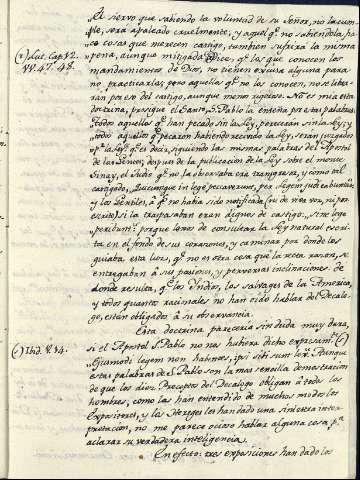 El siervo que sabiendo la voluntad de su Señor, no la cum-
ple, será apaleado cruelmente, y aquel q.e no sabiendola ha-
(1) Luc. Cap. 12. ce cosas que merecen castigo, tambien sufrirá la misma
VV. 47. 48. pena, aunque mitigada (1) Dice, q.e los que conocen los
mandamientos de Dios, no tienen excusa alguna para
no practicarlos; pero aquellos q.e no los conocen, no se libra-
ran por eso del castigo, aunque menos riguroso. No es mia esta
doctrina, prosigue el Santo. S. Pablo la enseña por estas palabras:
todos aquellos q.e han pecado sin la Ley, pereceran sin la Ley; y
todos aquellos q.e pecaron habiendo recivido la Ley, seran juzgados
por la Ley: q.e es decir, siguiendo las mismas palabras del Apostol
de las Gentes, despues de la publicacion de la Ley sobre el monte
Sinay, el Judio q.e no la observaba era transgresor, y como tal
castigado, Quicumque in lege peccaverunt, per legem judicabuntur;
y los Gentiles, à q.e no habia sido notificada (ni de viva voz, ni por
escrito) si la traspasaban eran dignos de castigo, sine lege
peribunt: porque lejos de consultar la Ley natural escri-
ta en el fondo de sus corazones, y caminar por donde los
guiaba esta luz, q.e no es otra cosa que la recta razon, se
entregaban à sus pasiones, y perversas inclinaciones: de
donde resulta, q.e los Yndios, los salvages de la America,
y todos quantos racionales no han oido hablar del Decalo-
go, están obligados à su observancia.
Esta doctrina pareceria sin duda muy dura,
(2) Ibid. V. 14. si el Apostol S. Pablo no nos hubiera dicho expresam.te (2)
Ejusmodi legem non habentes, ipsi sibi sunt lex. Aunque
estas palabras de S. Pablo son la mas sencilla demostracion
de que los diez Preceptos del Decalogo obligan à todos los
hombres; como las han entendido de muchos modos los
Expositores, y los Hereges les han dado una siniestra inter-
pretacion, no me parece ocioso hablar alguna cosa p.a
aclarar su verdadera inteligencia.
En efecto: tres exposiciones han dado los